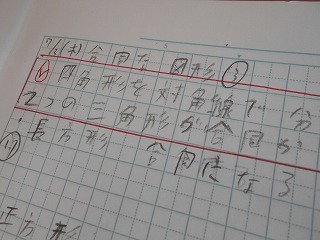 7/3(木) 合同な 図形③
め 四角形を対角線で 分
2つの三角形が合同か
長方形 合同になる
正方形